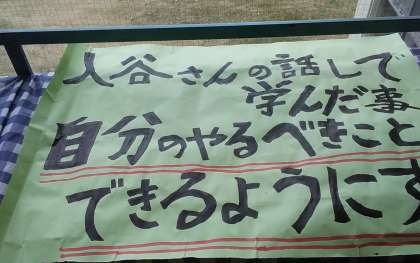 人谷さんの話しで
学んだ事
自分のやるべきこと
できるようにす